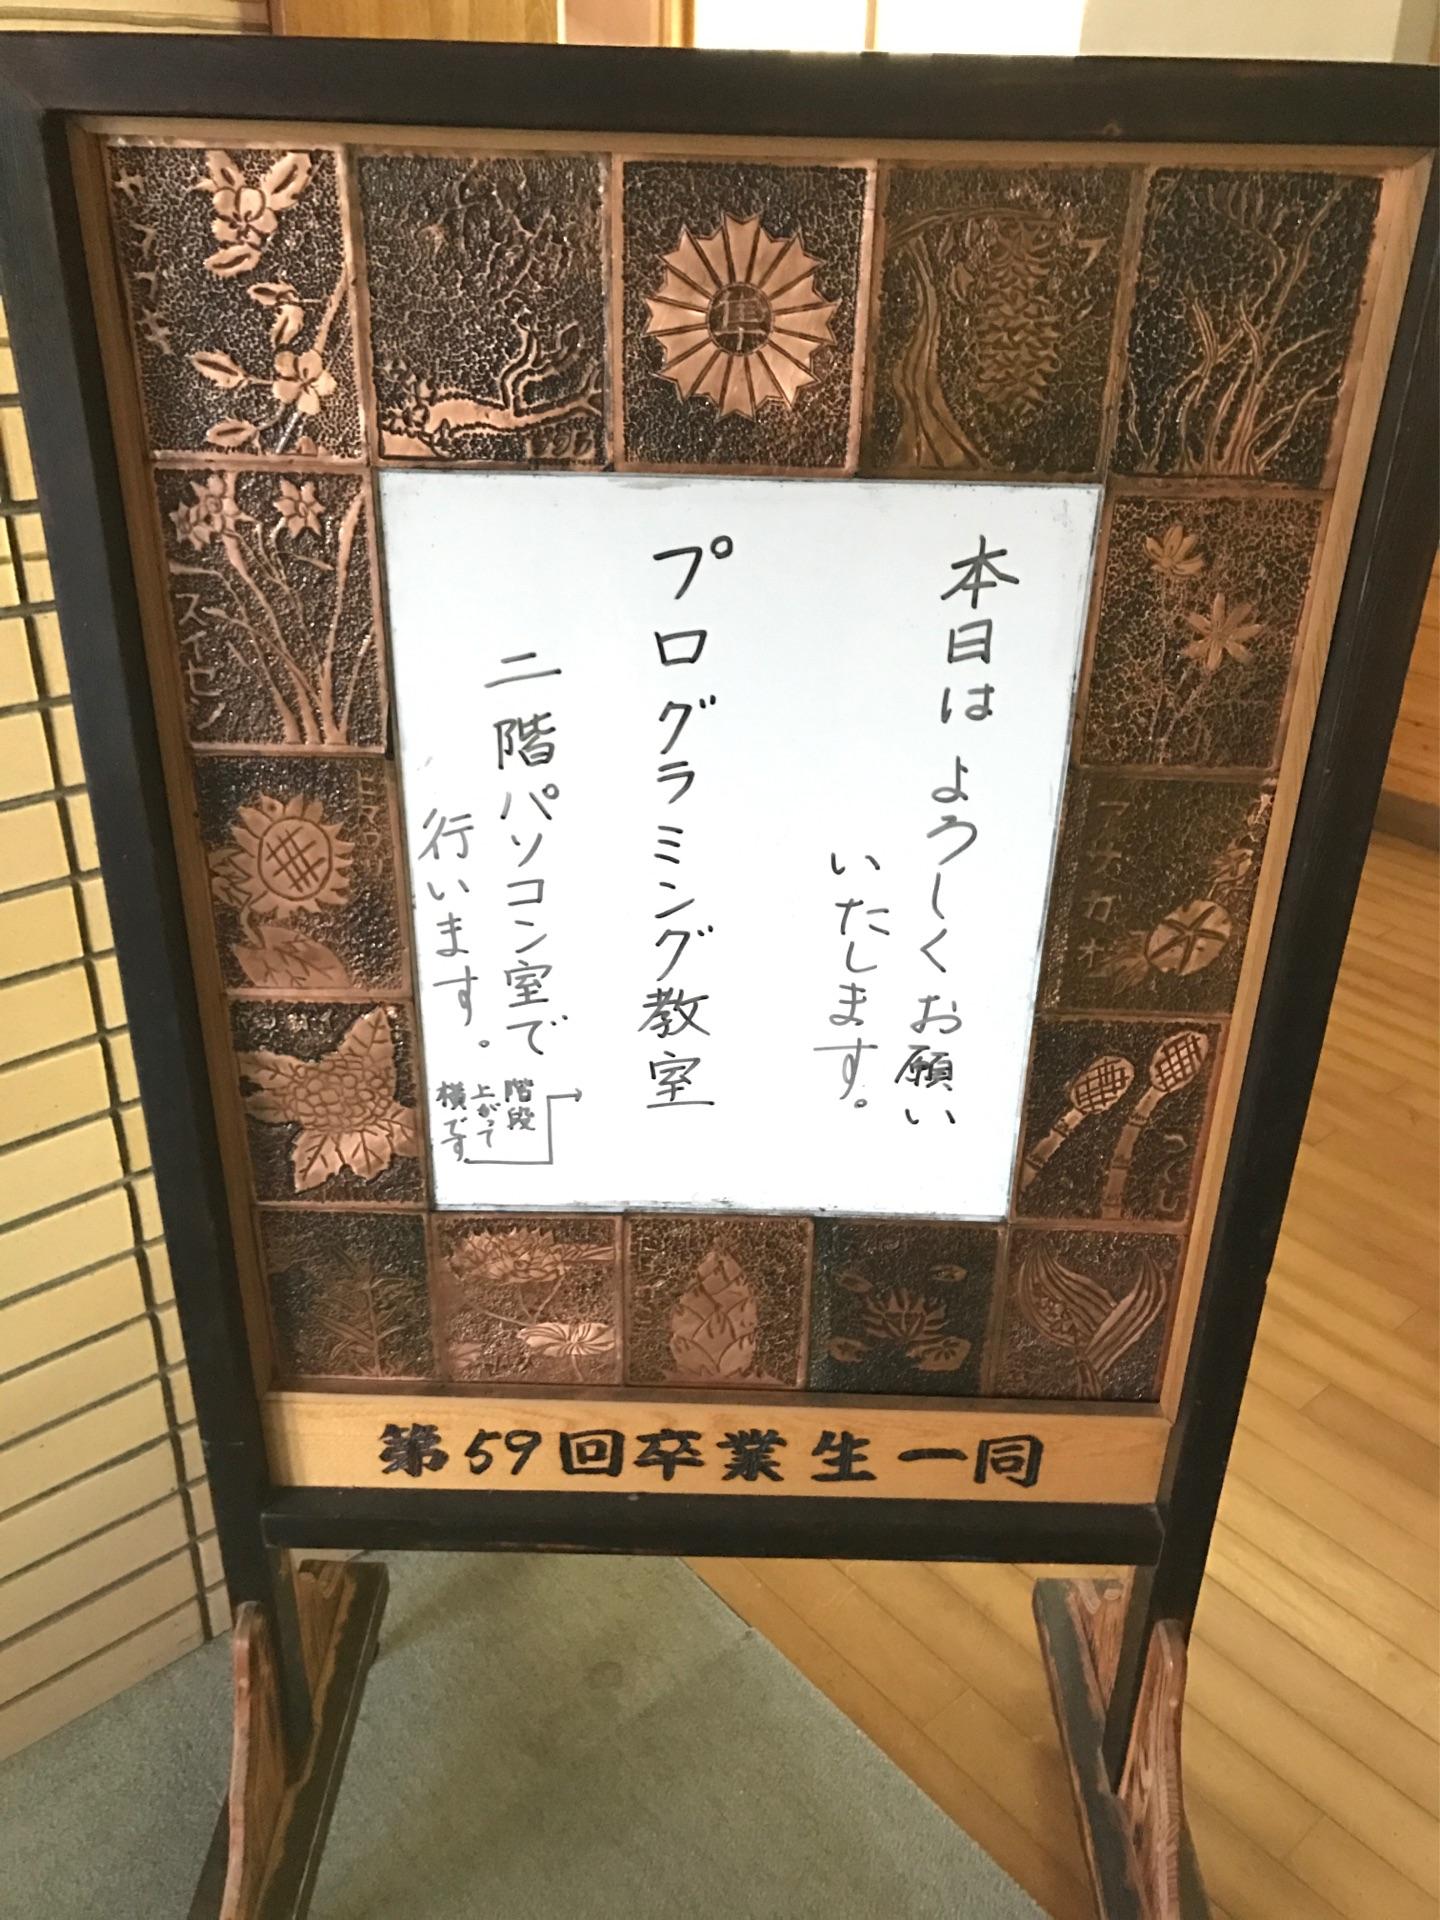 本日はよろしくお願い
いたします。
プログラミング教室
二階パソコン室で
行います。
階段
上がって
横です
スイセン
アサガオ
つくし
第59回卒業生一同